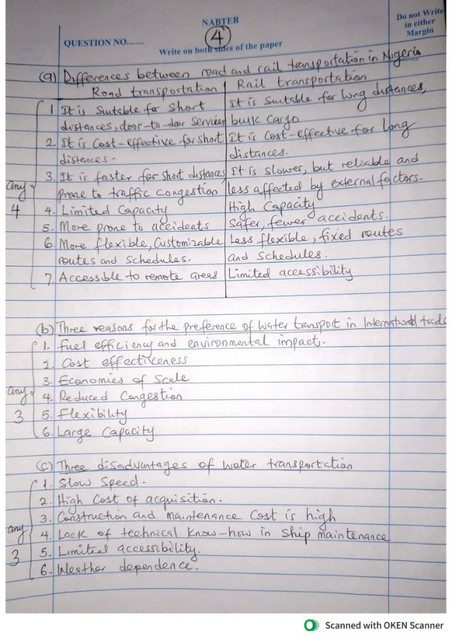 NABTEB
Do not Write
in either
Margin
(4)
QUESTION NO........
Write on both sides of the paper
(a) Differences between road and rail transportation in Nigeria
Road transportation | Rail transportation
1 It is Suitable for Short | It is Suitable for long distances,
distances, door-to door Services | bulk cargo
2. It is Cost-effective for short | It is Cost-effective for long
distances. | distances.
3. It is faster for Short distances | It is slower, but reliable and
prone to traffic congestion | less affected by external factors.
any
4
4. Limited Capacity | High Capacity
5. More prone to accidents | Safer, fewer accidents.
6. More flexible, Customizable | Less flexible, fixed routes
routes and schedules. | and schedules.
7 Accessible to remote areas | Limited accessibility
(b) Three reasons for the preference of water transport in International trade
1. Fuel efficiency and environmental impact.
2. Cost effectiveness
3. Economies of Scale
any
3
4. Reduced Congestion
5. Flexibility
6. Large Capacity
(c) Three disadvantages of water transportation
1. Slow Speed.
2. High Cost of acquisition.
3. Construction and maintenance Cost is high
any
3
4. Lack of technical know-how in Ship maintenance
5. Limited accessibility.
6. Weather dependence.
Scanned with OKEN Scanner